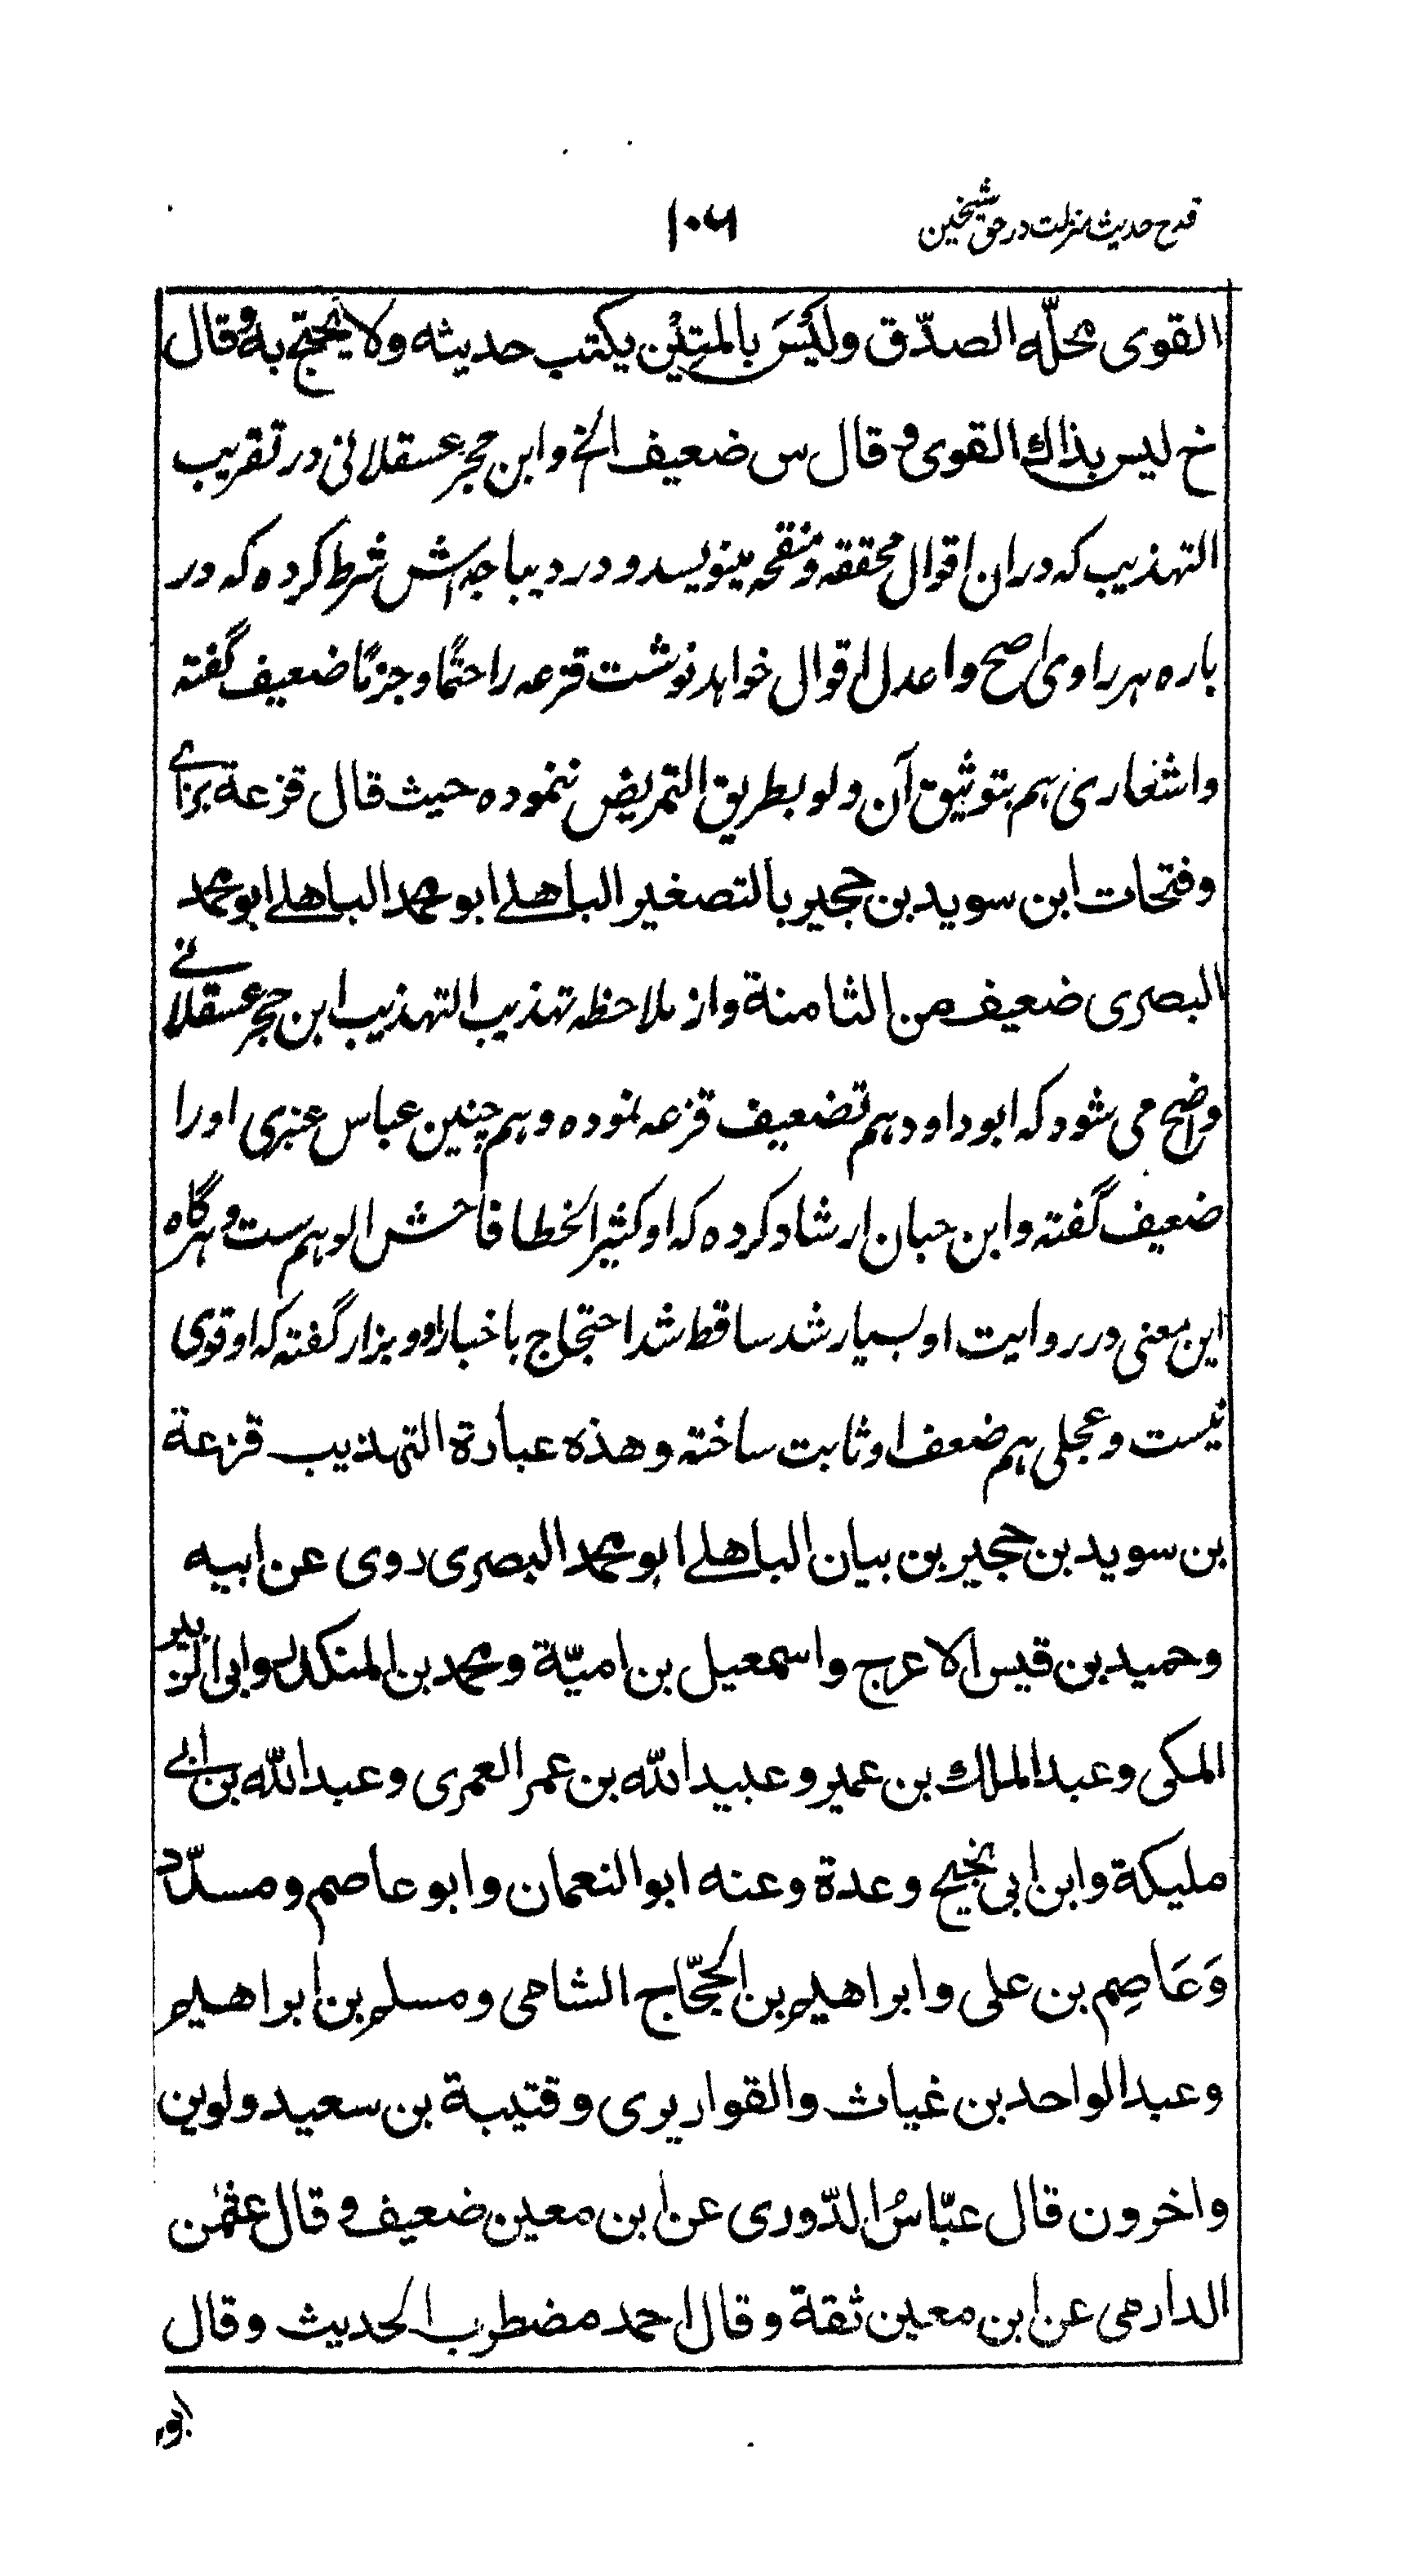 قدح حدیث منزلت در حق شیخین
۱۰۶
القوی محلّه الصدّق ولَیْسَ بالمتِیْن یکتب حدیثه ولا یحتجّ به وقال
خ لیس بذاك القوی و قال س ضعیف الخ وابن حجر عسقلانی در تقریب
التهذیب که دران اقوال محققه و منقحه مینویسد و در دیباجه اش شرط کرده که در
باره هر راوی اصح و اعدل اقوال خواهد نوشت قزعه را حتمًا و جزمًا ضعیف گفته
و اشعاری هم بتوثیق آن ولو بطریق التمریض ننموده حیث قال قزعة بزاے
وفتحات ابن سوید بن حجیر بالتصغیر الباهلے ابو محمد الباهلے ابو محمد
البصری ضعیف من الثامنة و از ملاحظه تهذیب التهذیب ابن حجر عسقلانے
واضح می شود که ابو داود هم تضعیف قزعه نموده و هم چنین عباس عنبری اورا
ضعیف گفته و ابن حبان ارشاد کرده که او کثیر الخطا فاحش الوهم ست و هرگاه
این معنی در روایت او بسیار شد ساقط شد احتجاج باخبار او و بزار گفته که او قوی
نیست و عجلی هم ضعف او ثابت ساخته وهذه عبارة التهذیب قزعة
بن سوید بن حجیر بن بیان الباهلے ابو محمد البصری روی عن ابیه
وحمید بن قیس الاعرج واسمعیل بن امیّة ومحمد بن المنکدر وابی الزبیر
المکی وعبد الملك بن عمیر وعبید الله بن عمر العمری وعبد الله بن ابے
ملیکة وابن ابی نجیح وعدة وعنه ابو النعمان وابو عاصم ومسدّد
وَعَاصِم بن علی وابراهیم بن الحجّاج الشامی ومسلم بن ابراهیم
وعبد الواحد بن غیاث والقواریری وقتیبة بن سعید ولوین
واخرون قال عبّاسُ الدّوری عن ابن معین ضعیف و قال عثمٰن
الدارمی عن ابن معین ثقة وقال احمد مضطرب الحدیث وقال